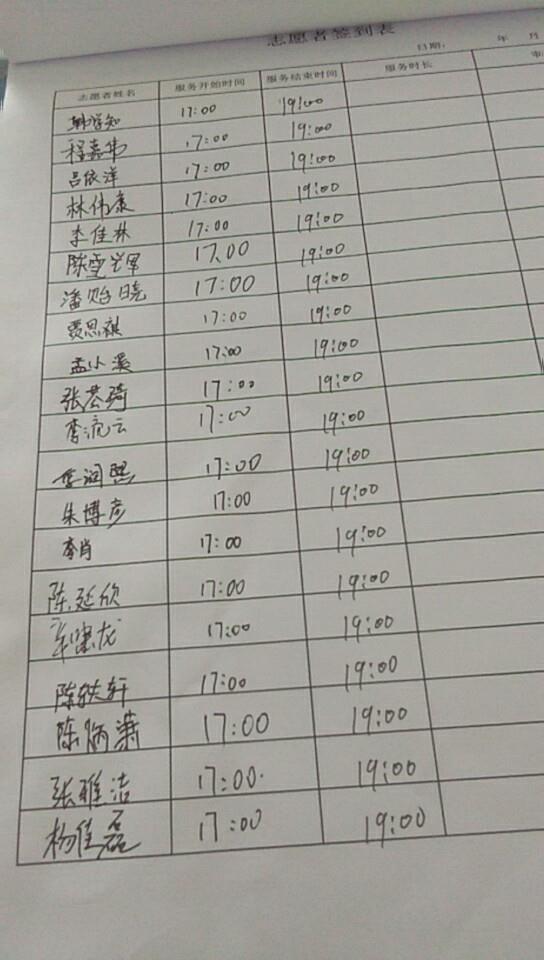 志愿者签到表
日期： 年 月
志愿者姓名 服务开始时间 服务结束时间 服务时长
韩学知 17:00 19:00
程嘉伟 17:00 19:00
吕依洋 17:00 19:00
林伟康 17:00 19:00
李佳林 17:00 19:00
陈雪 17.00 19:00
潘贻晓 17:00 19:00
贾思祺 17:00 19:00
孟小溪 17:00 19:00
张芸琦 17:00 19:00
李流云 17:00 19:00
李润熙 17:00 19:00
朱博彦 17:00 19:00
李肖 17:00 19:00
陈延欣 17:00 19:00
车啸龙 17:00 19:00
陈轶轩 17:00 19:00
陈炳潇 17:00 19:00
张雅洁 17:00. 19:00
杨佳磊 17:00 19:00